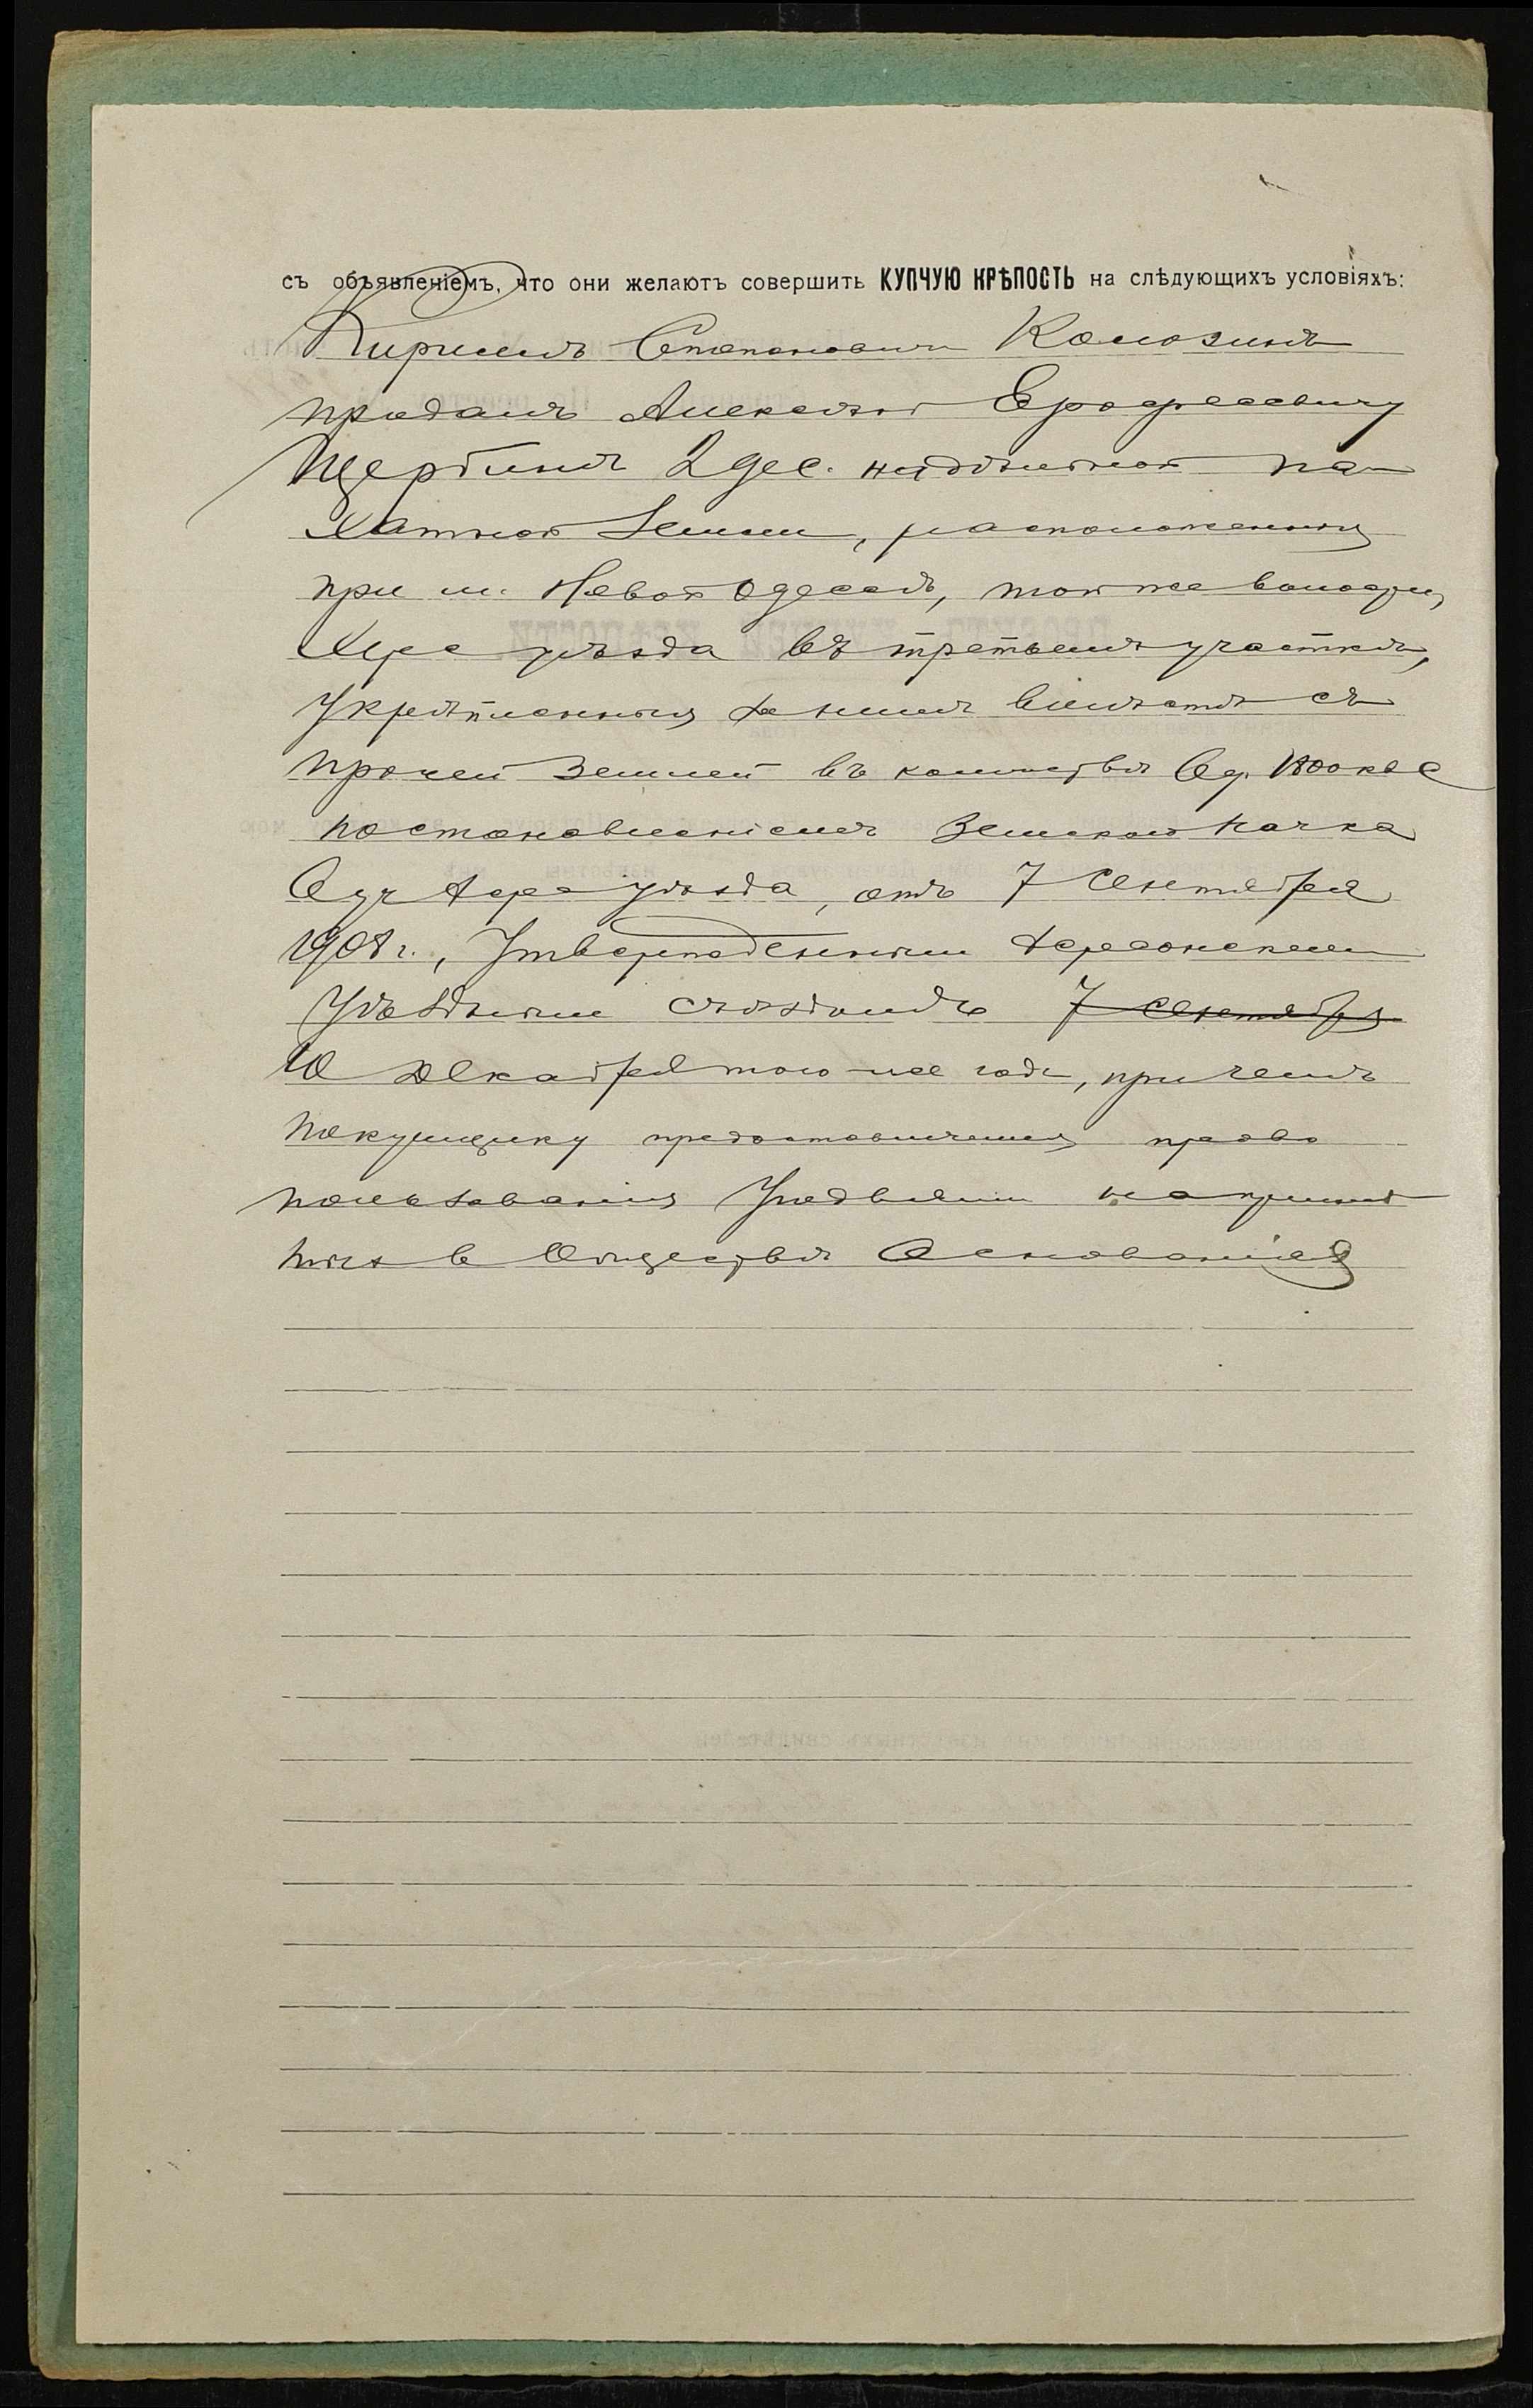 съ объявленіемъ, что они желаютъ совершить КУПЧУЮ КРѢПОСТЬ на слѣдующихъ условіяхъ:
Кириллъ Степановичъ
продалъ Алексѣю Ерофеевичу
Щербинѣ 2 дес. надѣльной па-
хатной земли, расположенной
при м. Новой Одессѣ, той же волости,
Хер. уѣзда въ третьемъ участкѣ,
Укрѣпленныя за нимъ вмѣстѣ съ
прочей землей въ количествѣ
постановленіемъ Земскаго Начка
6 уч Херс уѣзда, отъ 7 Сентября
1908 г., Утвержденнымъ Херсонскимъ
Уѣзднымъ съѣздомъ 7 Сентября
10 Декабря того-же года, при чемъ
покупщику предоставляется право
пользованія на приня
тыхъ в Обществѣ Основаніяхъ